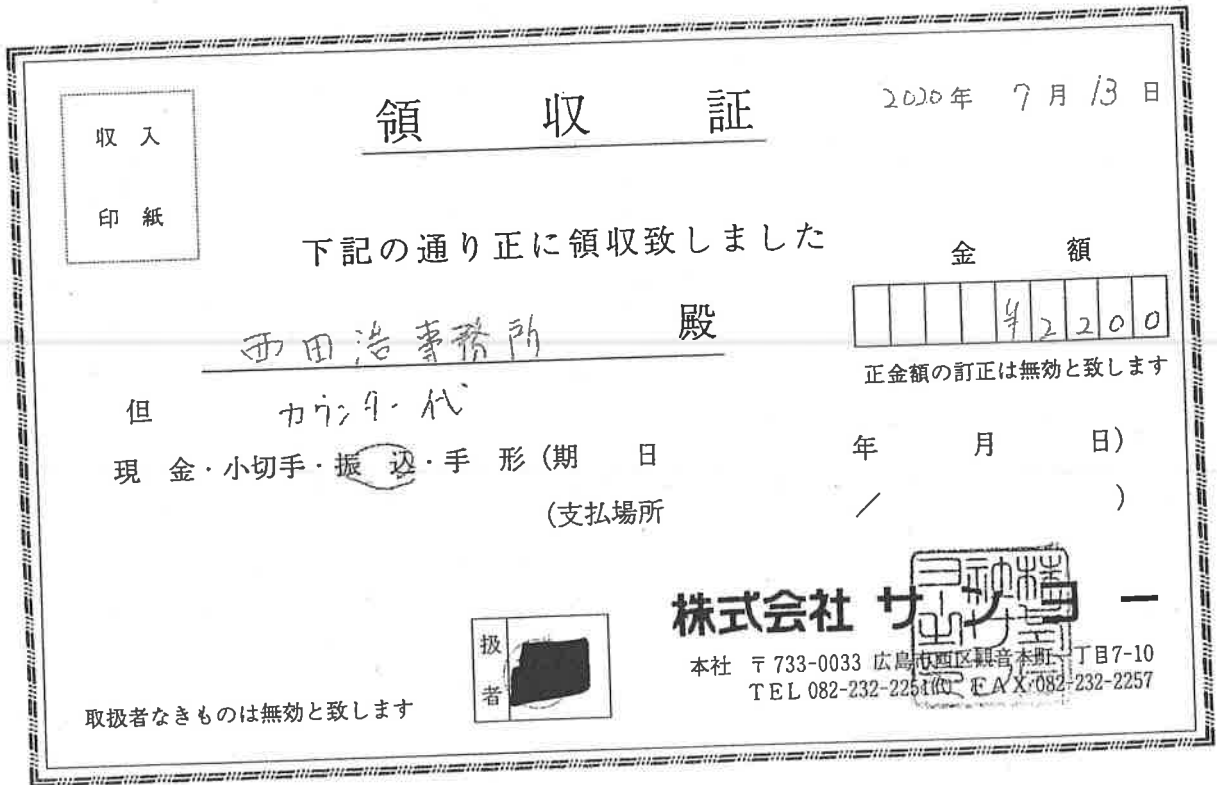 2020年 7月 13日
収入
印紙
領収証
下記の通り正に領収致しました
金額
西田浩事務所 殿
¥2200
正金額の訂正は無効と致します
但 カウンター代
現金・小切手・振込・手形(期日 年 月 日)
(支払場所 / )
株式会社 サンヨー
扱者
本社 〒733-0033 広島市西区観音本町 丁目7-10
TEL 082-232-2251(代) FAX 082-232-2257
取扱者なきものは無効と致します